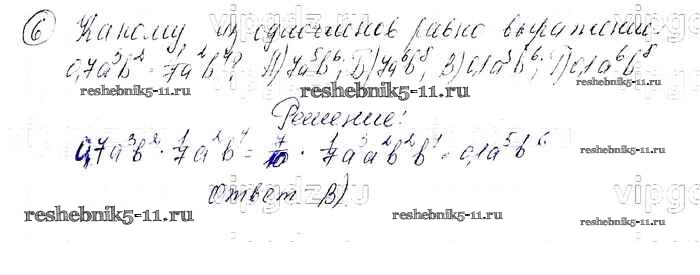 ⑥ Какому из одночленов равно выражение:
0,7a³b² · 1/7a²b⁴? А) 7a⁵b⁶; Б) 7a⁶b⁸; В) 0,1a⁵b⁶; Г) 0,1a⁶b⁸
reshebnik5-11.ru reshebnik5-11.ru
Решение:
0,7a³b² · 1/7a²b⁴ = 7/10 · 1/7a³a²b²b⁴ = 0,1a⁵b⁶
Ответ В)
reshebnik5-11.ru reshebnik5-11.ru reshebnik5-11.ru